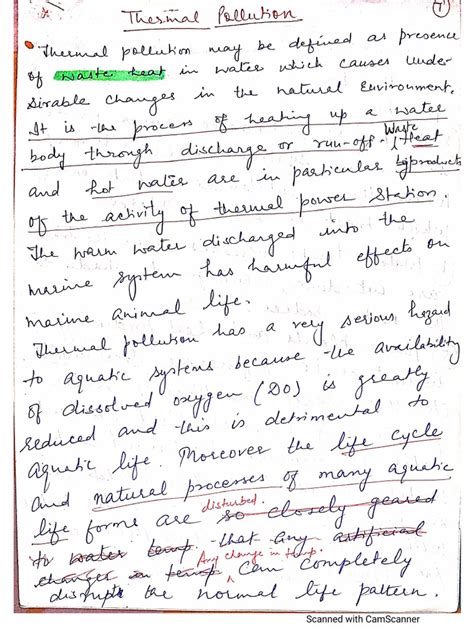 Thermal Pollution
7
Thermal pollution may be defined as presence
of waste heat in water which causes under
sirable changes in the natural Environment.
It is the process of heating up a water
body through discharge or run-off. Waste Heat
and hot water are in particular byproducts
of the activity of thermal power Station
The warm water discharged into the
marine system has harmful effects on
marine animal life.
Thermal pollution has a very serious hazard
to aquatic systems because the availability
of dissolved oxygen (DO) is greatly
reduced and this is detrimental to
aquatic life. Moreover the life cycle
and natural processes of many aquatic
life forms are disturbed. so closely geared
to water temp that any artificial
changes in temp Any change in temp. Can completely
disrupts the normal life pattern.
Scanned with CamScanner